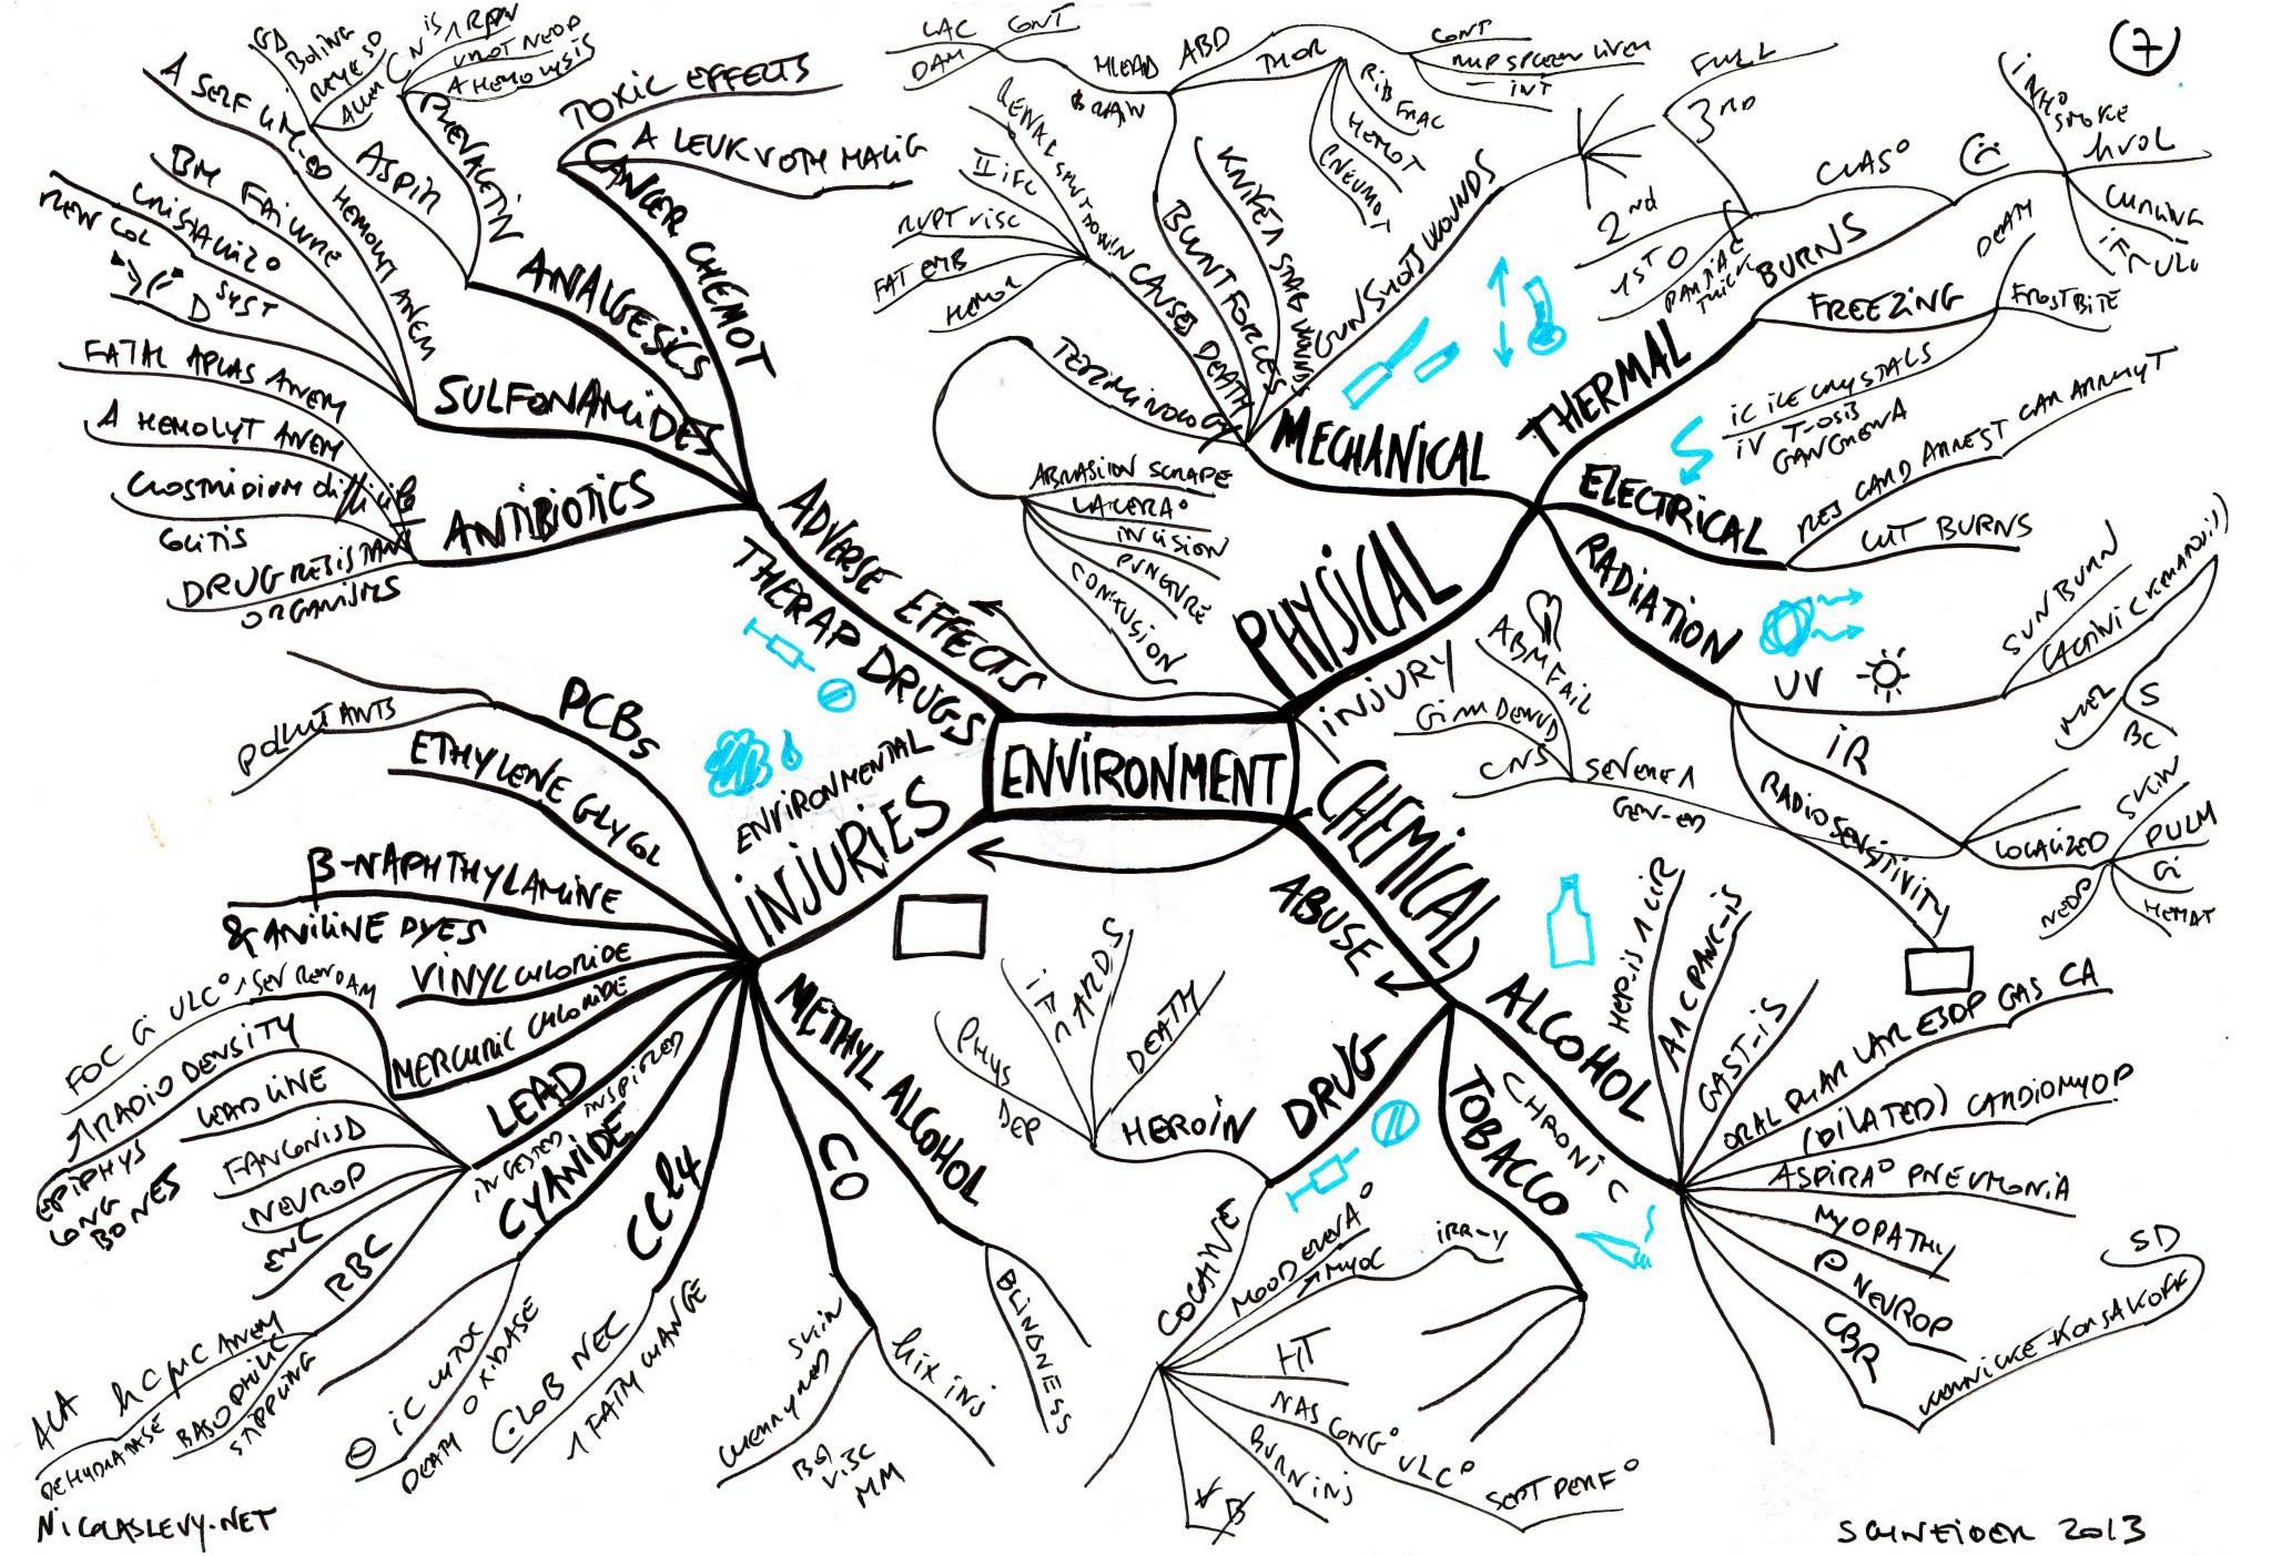 7
ENVIRONMENT
PHYSICAL
INJURY
MECHANICAL
TERMINOLOGY
ABRASION SCRAPE
LACERA°
INCISION
PUNCTURE
CONTUSION
CAUSES DEATH
RENAL SHUTDOWN
II iFC
RUPT VISC
FAT EMB
HEMOR
BLUNT FORCES
HEAD
BRAIN
LAC CONT
DAM
ABD
THOR
CONT
RUP SPLEEN LIVER
INT
RIB FRAC
HEMOT
PNEUMOT
KNIFE & STAB WOUNDS
GUNSHOTS WOUNDS
THERMAL
BURNS
CLAS°
FULL
3RD
2nd
1ST
PARTIAL
THICK
INH°
SMOKE
hVOL
CURLING
ULC
FREEZING
DEATH
FROSTBITE
iC iCE CRYSTALS
iV T-OSIS
GANGRENA
ELECTRICAL
RES CARD ARREST CAR ARRHYT
CUT BURNS
RADIATION
UV
SUN BURN
(ACTINIC KERATOSIS)
MEL
S
BC
iR
LOCALIZED
SKIN
PULM
Gi
HEMAT
NEOP
SEVERE 1
GEN-ED
ABM FAIL
Gi MM DENUD
CNS
RADIOSENSITIVITY
CHEMICAL
ABUSE
ALCOHOL
CHRONIC
HEP-iS 1 CIR
A1 C PANC-iS
GAST-iS
ORAL PHAR LAR ESOP GAS CA
(DILATED) CARDIOMYOP
ASPIRA° PNEUMONIA
MYOPATHY
P NEUROP
CBR
WERNICKE-KORSAKOFF
SD
TOBACCO
DRUG
HEROIN
PHYS
DEP
ARDS
DEATH
COCAINE
MOOD ELEVA°
MYOC
iRR-Y
HT
NAS CONG° ULC°
SEPT PERF°
BURN INJ
ENVIRONMENTAL
INJURIES
METHYL ALCOHOL
BLINDNESS
CO
hix inj
SKIN
CHERRY RED
BQ
VISC
MM
CCl4
C LOB NEC
1 FATTY CHANGE
CYANIDE
INGESTED
INSPIRED
⊖ iC CYTOC
OXIDASE
DEATH
LEAD
↑ RADIO DENSITY
EPIPHYS
LONG
BONES
LEAD LINE
FANCONI SD
NEUROP
ENC
RBC
hC µC ANEM
ALA
DEHYDRATASE
BASOPHILIC
STIPPLING
MERCURIC CHLORIDE
FOC Gi ULC° 1 SEV REN DAM
VINYL CHLORIDE
β-NAPHTHYLAMINE
& ANILINE DYES
ETHYLENE GLYCOL
PCBs
POLLUTANTS
ADVERSE EFFECTS
THERAP DRUGS
ANTIBIOTICS
FATAL APLAS ANEM
A HEMOLYT ANEM
CLOSTRIDIUM difficile
COLITIS
DRUG RESISTANT
ORGANISMS
SULFONAMIDES
A SELF LIM-ED HEMOLYT ANEM
BM FAILURE
CRISTALIZ°
REN COL
D SYST
ANALGESICS
ASPIR
GA
BOLING
REYE SD
ALLER
PHENACETIN
CN iS 1 RPN
UROT NEOP
A HEMOLYSIS
CANCER CHEMOT
TOXIC EFFECTS
A LEUK V OTH MALIG
NICOLASLEVY.NET
SCHNEIDER 2013